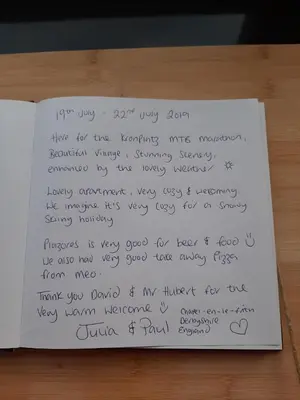 19th July - 22nd July 2019
Here for the Kronplatz MTB marathon,
Beautiful Village, Stunning Scenery,
enhanced by the lovely weather ☼
Lovely apartment, very cozy & welcoming.
We imagine it's very cozy for a snowy
Skiing holiday
is very good for beer & food ☺
We also had very good take away Pizza
from Meo.
Thank you David & Mr Hubert for the
Very warm welcome ☺
Julia & Paul
Chapel-en-le-Frith
Derbyshire
England ♡